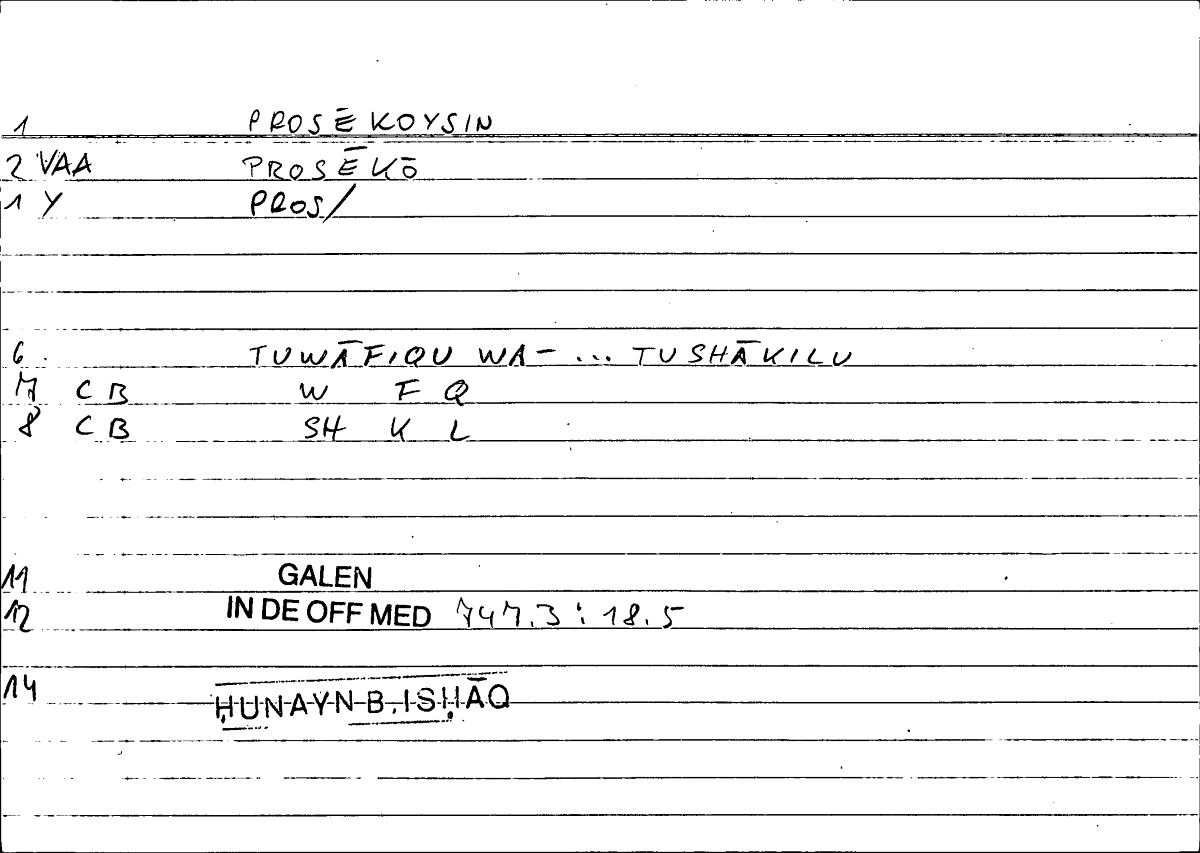 1 PROSĒKOYSIN
2 VAA PROSĒKŌ
1 Y PROS/
6 TUWĀFIQU WA- ... TUSHĀKILU
7 C B W F Q
8 C B SH K L
11 GALEN
12 IN DE OFF MED 747.3 : 18.5
14 ḤUNAYN B. ISḤĀQ